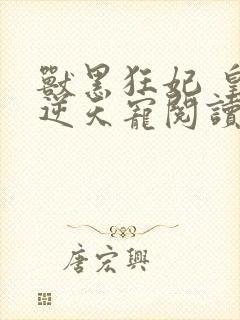 獸黑狂妃 皇
逆天寵閱讀
唐宏興